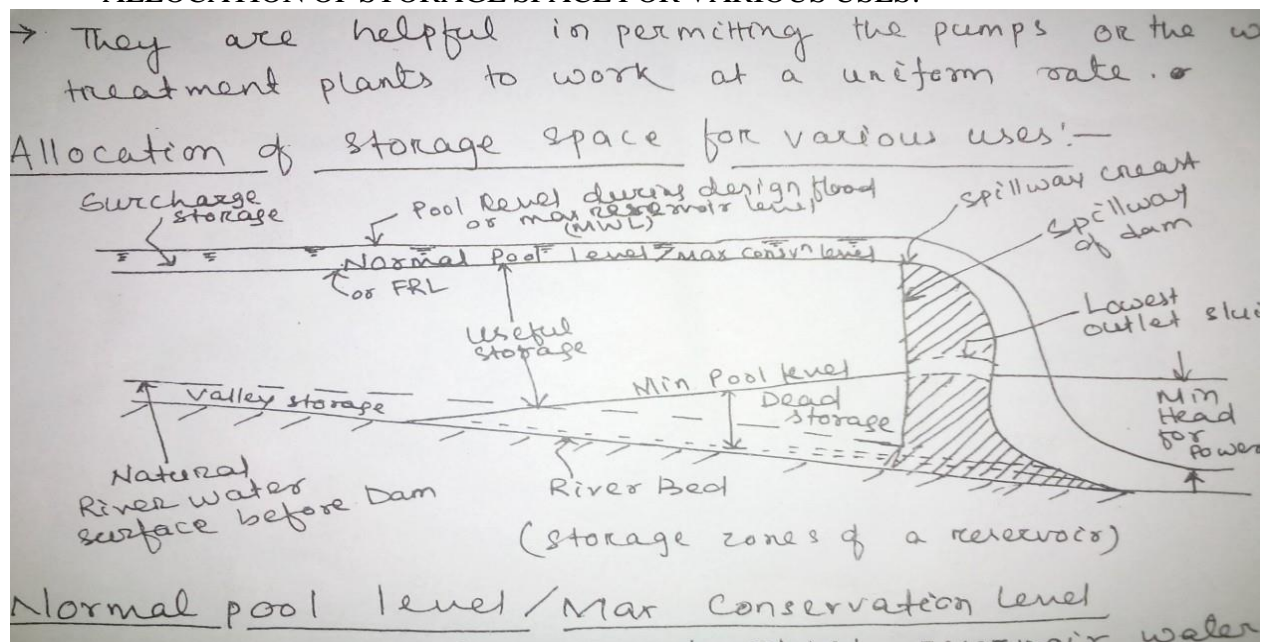 ALLOCATION OF STORAGE SPACE FOR VARIOUS USES:
→ They are helpful in permitting the pumps OR the
treatment plants to work at a uniform rate.
Allocation of storage space for various uses:—
Surcharge
storage
Pool level during design flood
or max reservoir level
(MWL)
spillway creast
Spillway
of dam
Normal Pool level/Max consvn level
or FRL
Useful
storage
Lowest
outlet slui
Valley storage
Min Pool level
Dead
storage
Min
Head
for
Power
Natural
River water
surface before Dam
River Bed
(storage zones of a reservoir)
Normal pool level/Max Conservation Level
water